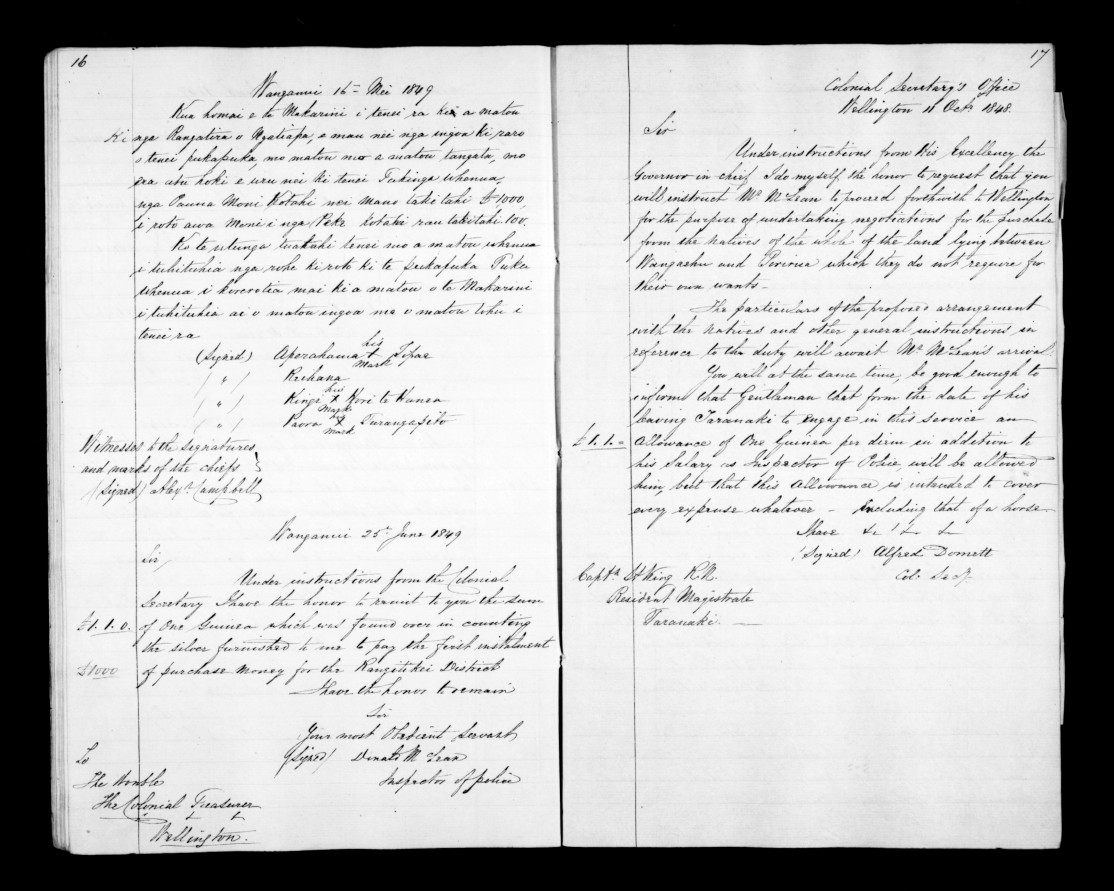 16
Wanganui 16th Mei 1849
Kua homai e te Makarini i tenei ra kia a matou
Ki nga Rangatira o Ngatiapa, e mau nei nga ingoa ki raro
o tenei pukapuka, mo matou mo a matou tangata, mo
era atu hoki e uru nei ki tenei Tukunga whenua,
nga Pauna Moni Kotahi nei mano takitahi £1000,
i roto aua Moni i nga Peke kotahi rau takitahi 100.
Ko te utunga tuatahi tenei mo a matou whenua
i tuhituhia nga rohe ki roto ki te pukapuka Tuku
whenua i korerotia mai ki a matou o te Makarini
i tuhituhia ai o matou ingoa me o matou tohu i
tenei ra
(Signed) Aperahama his x mark Tipae
( " ) Reihana
( " ) Kingi his x mark Hori te Hanea
( " ) Paora his x mark Turangapito
Witnesses to the signatures
and marks of the chiefs
(Signed) Alexr. Campbell
Wanganui 25th June 1849
Sir,
Under instructions from the Colonial
Secretary I have the honor to remit to you the sum
£1.1.0. of One Guinea which was found over in counting
the silver furnished to me to pay the first instalment
£1000 of purchase money for the Rangitikei District
I have the honor to remain
Sir
Your most Obedient Servant
(Signed) Donald McLean
Inspector of police
To
The Honble
The Colonial Treasurer
Wellington.
17
Colonial Secretary's Office
Wellington 11 Octr. 1848.
Sir
Under instructions from His Excellency the
Governor in chief I do myself the honor to request that you
will instruct Mr McLean to proceed forthwith to Wellington
for the purpose of undertaking negotiations for the purchase
from the Natives of the whole of the land lying between
Wangaehu and Porirua which they do not require for
their own wants -
The particulars of the proposed arrangement
with the Natives and other general instructions in
reference to the duty will await Mr McLean's arrival.
You will at the same time, be good enough to
inform that Gentleman that from the date of his
leaving Taranaki to engage in this service an
£1.1.= Allowance of One Guinea per diem in addition to
his Salary as Inspector of Police, will be allowed
him, but that this Allowance is intended to cover
every expense whatever - including that of a horse -
I have &c &c &c
(Signed) Alfred Domett
Col: Secy.
Captn. St King R.N.
Resident Magistrate
Taranaki. —